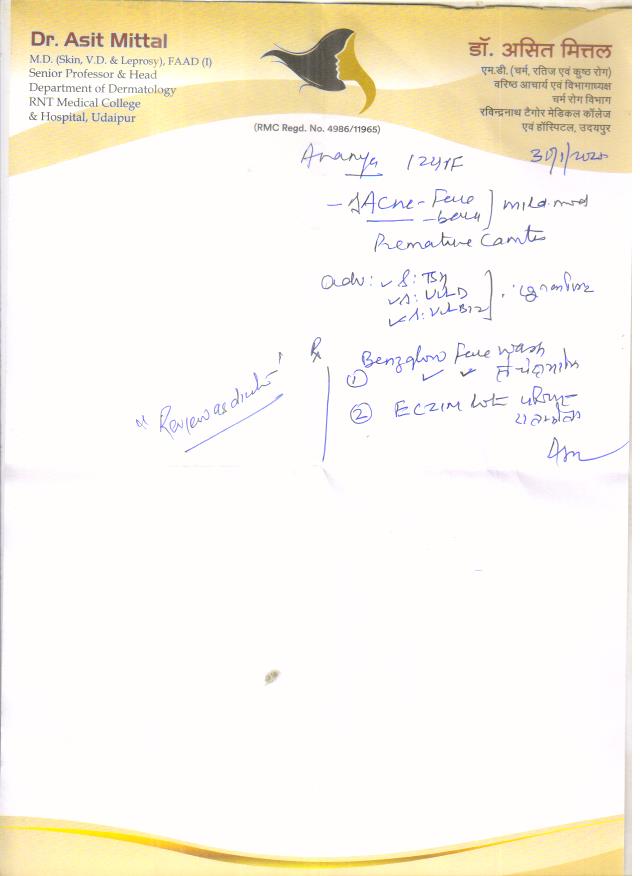 Dr. Asit Mittal
M.D. (Skin, V.D. & Leprosy), FAAD (I)
Senior Professor & Head
Department of Dermatology
RNT Medical College
& Hospital, Udaipur
डॉ. असित मित्तल
एम.डी. (चर्म, रतिज एवं कुष्ठ रोग)
वरिष्ठ आचार्य एवं विभागाध्यक्ष
चर्म रोग विभाग
रविन्द्रनाथ टैगोर मेडिकल कॉलेज
एवं हॉस्पिटल, उदयपुर
(RMC Regd. No. 4986/11965)
Ananya
Acne - Face mild-mod
Premature
Adv: S. TSH
S. Vit D
S. Vit B12
Rx
① Benzglow Face wash
② ECZIM
"Review as